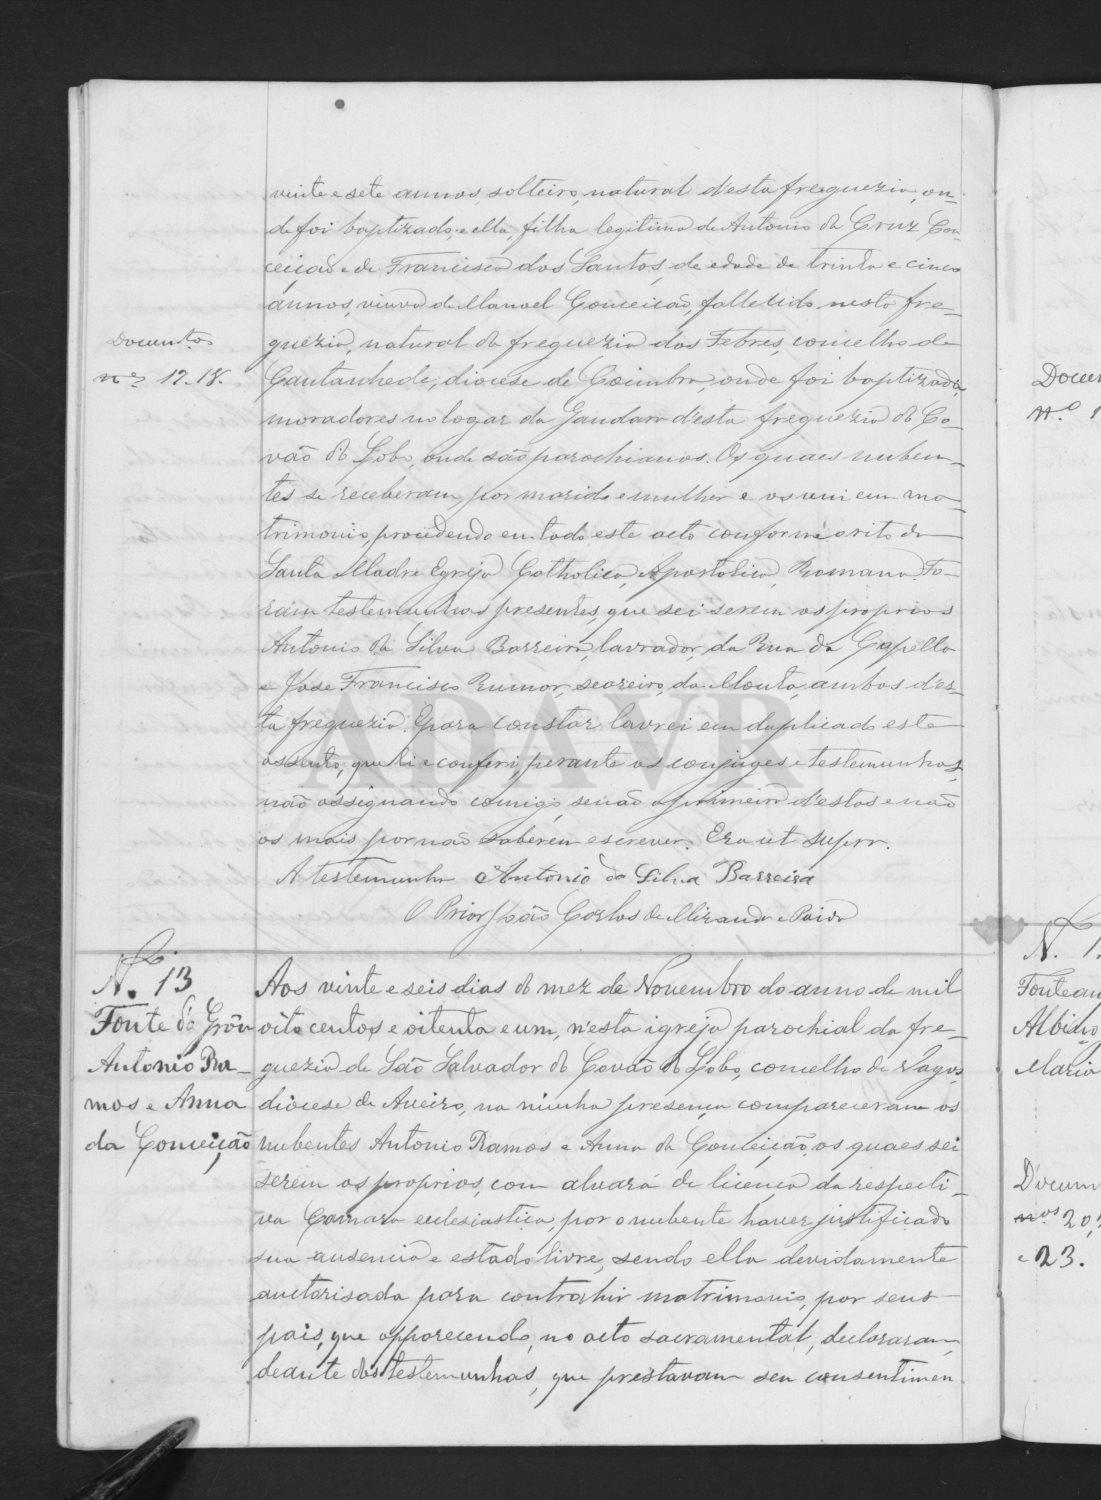 vinte e sete annos, solteiro, natural d'esta freguezia, on-
de foi baptizado, e ella, filha legitima de Antonio da Cruz Con-
ceição e de Francisca dos Santos, de edade de trinta e cinco
annos, viuva de Manoel Conceição, fallecido nesta fre-
guezia, natural da freguezia das Febres, concelho de
Cantanhede, diocese de Coimbra, onde foi baptizada,
moradores no logar da Gandara d'esta freguezia de Co-
vão do Lobo, onde são parochianos. Os quaes nuben-
tes se receberam por marido e mulher e os uni em ma-
trimonio, procedendo em todo este acto conforme o rito da
Santa Madre Egreja Catholica, Apostolica, Romana. Fo-
ram testemunhas presentes, que sei serem os proprios
Antonio da Silva Barreira, lavrador, da Rua da Capella
e José Francisco Rumor, seareiro, da Mouta, ambos d'es-
ta freguezia. E para constar lavrei em duplicado este
assento, que li e conferi, perante os conjuges e testemunhas,
não assignando comigo, senão a primeira d'estas e não
os mais por não saberem escrever. Era ut supra.
A testemunha Antonio da Silva Barreira
O Prior João Carlos de Miranda e Paiva
Documentos
nos 17. 18.
N. 13
Fonte do Grão
Antonio Ra-
mos e Anna
da Conceição
Aos vinte e seis dias do mez de Novembro do anno de mil
oito centos e oitenta e um, n'esta igreja parochial da fre-
guezia de São Salvador do Covão do Lobo, concelho de Vagos,
diocese de Aveiro, na minha presença compareceram os
nubentes Antonio Ramos e Anna da Conceição, os quaes sei
serem os proprios, com alvará de licença da respecti-
va Camara ecclesiastica, por o nubente haver justificado
sua ausencia e estado livre, sendo ella devidamente
auctorisada para contrahir matrimonio, por seus
pais, que apparecendo, no acto sacramental, declararam,
deante das testemunhas, que prestavam seu consentimen
Docum
N.º 1
N. 1
Albino
Maria
Docum
nos 20,
e 23.
ADAVR